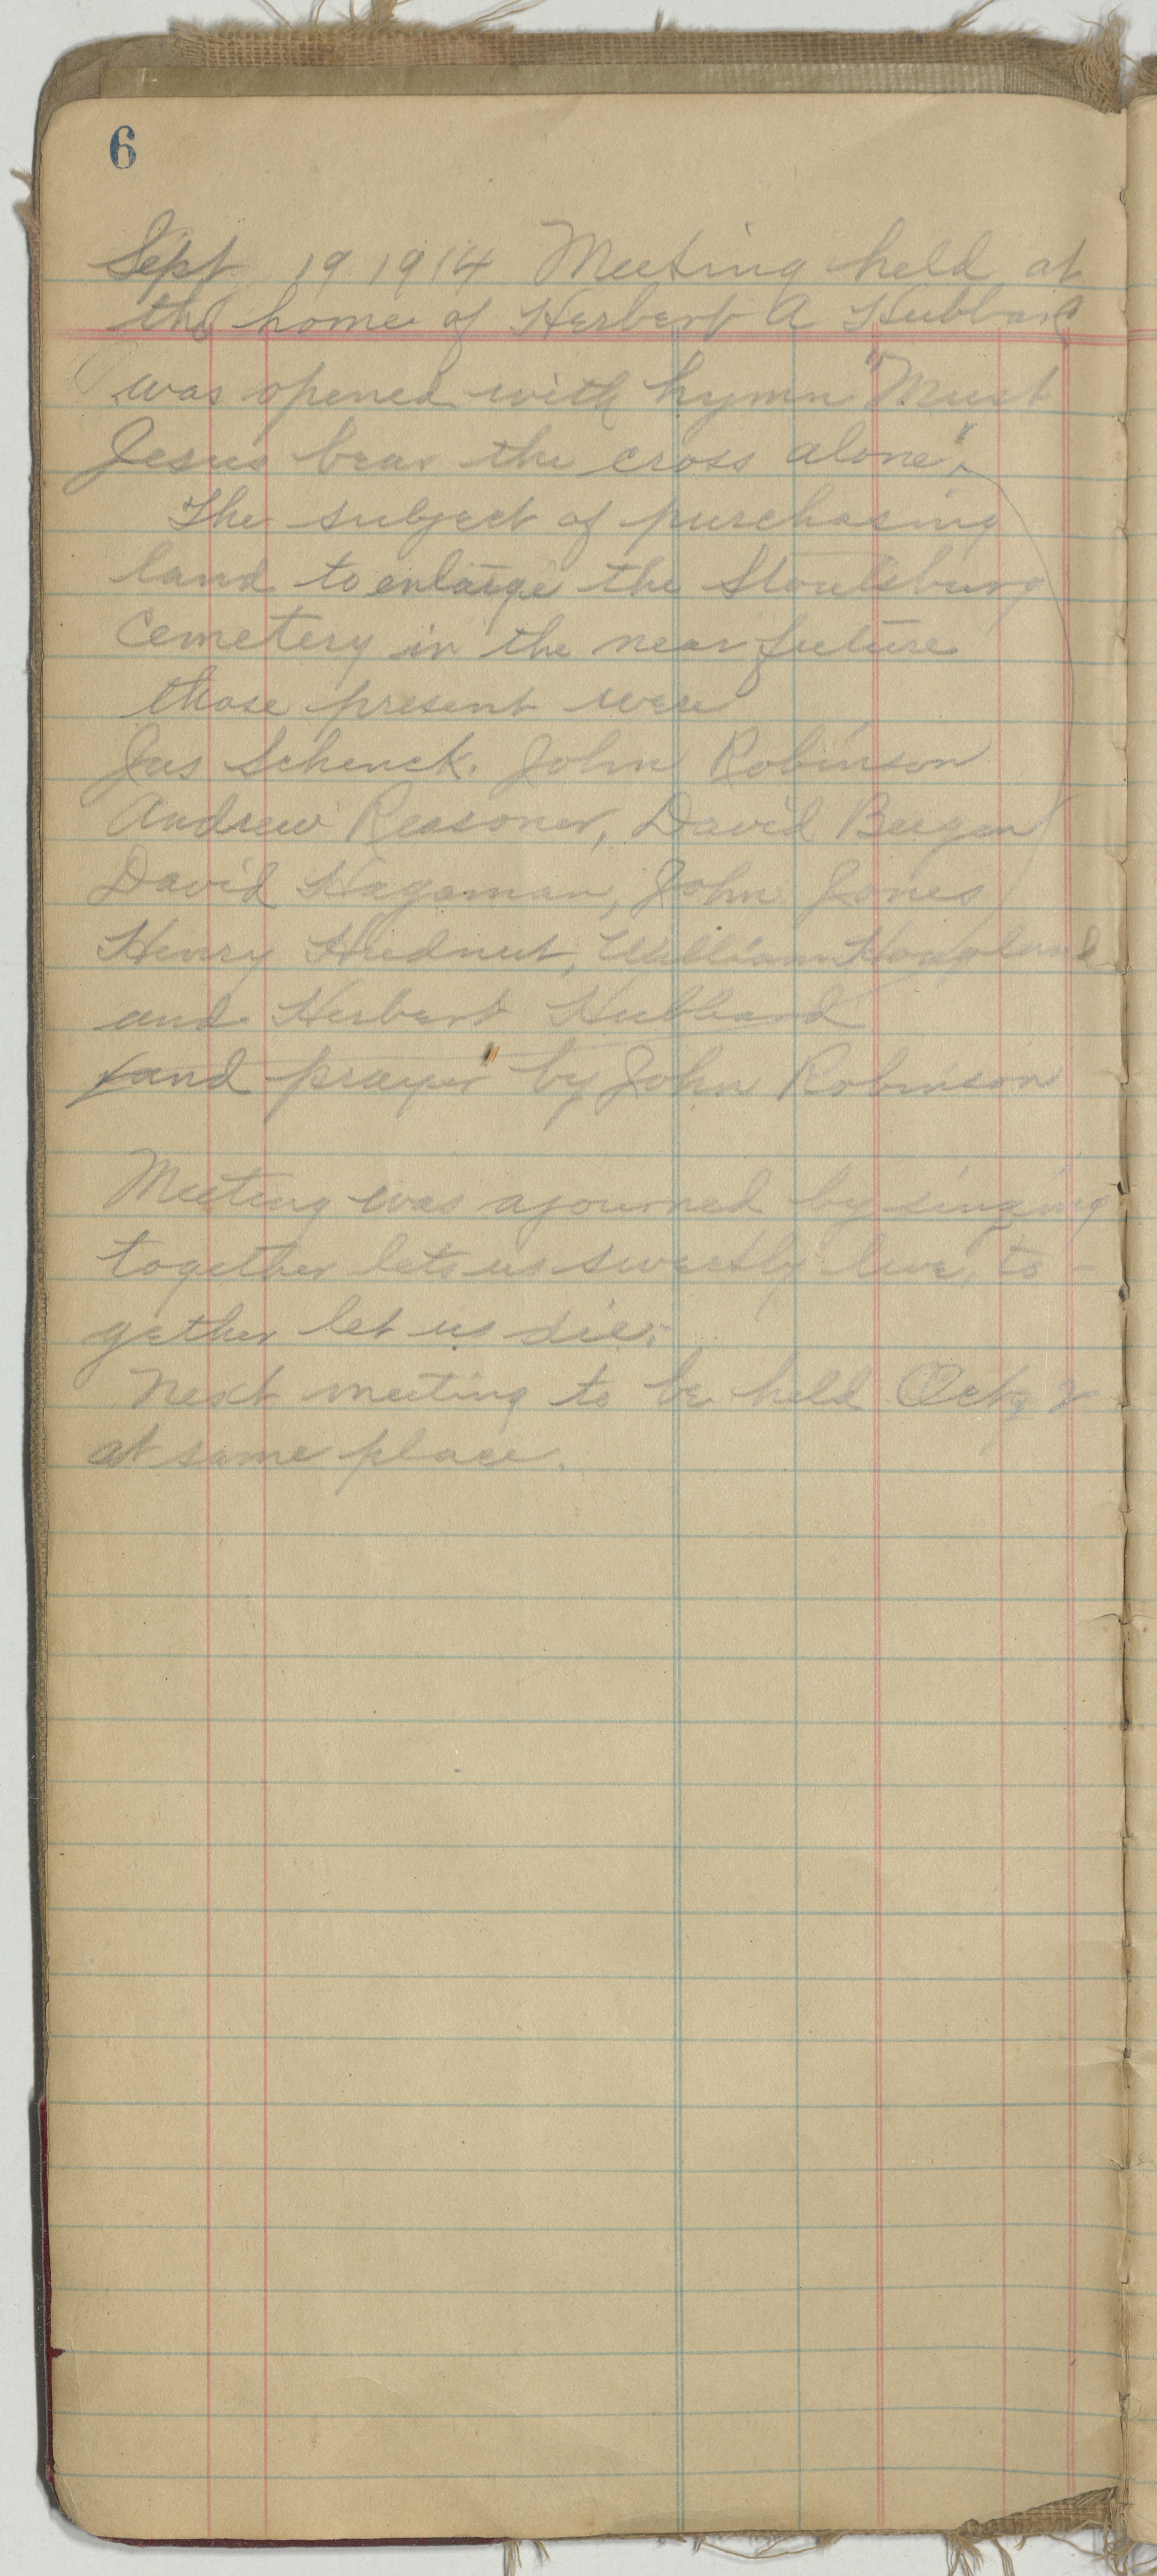 6
Sept 19 1914 Meeting held at
the home of Herbert A Hubbard
was opened with hymn "Must
Jesus bear the cross alone",
The subject of purchasing
land to enlarge the Stoutsburg
Cemetery in the near future
those present were
Jas Schenck. John Robinson
Andrew Reasoner, David Bergen
David Hagaman, John Jones
Henry Hudnut, William Hoagland
and Herbert Hubbard
(and prayer" by John Robinson
Meeting was ajourned by singing
together lets us sweetly live, to-
gether let us die;
Next meeting to be held Oct 2
at same place.